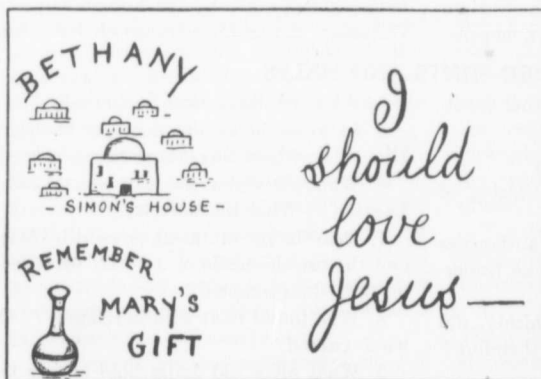 BETHANY
- SIMON'S HOUSE -
REMEMBER
MARY'S
GIFT
I
should
love
Jesus—